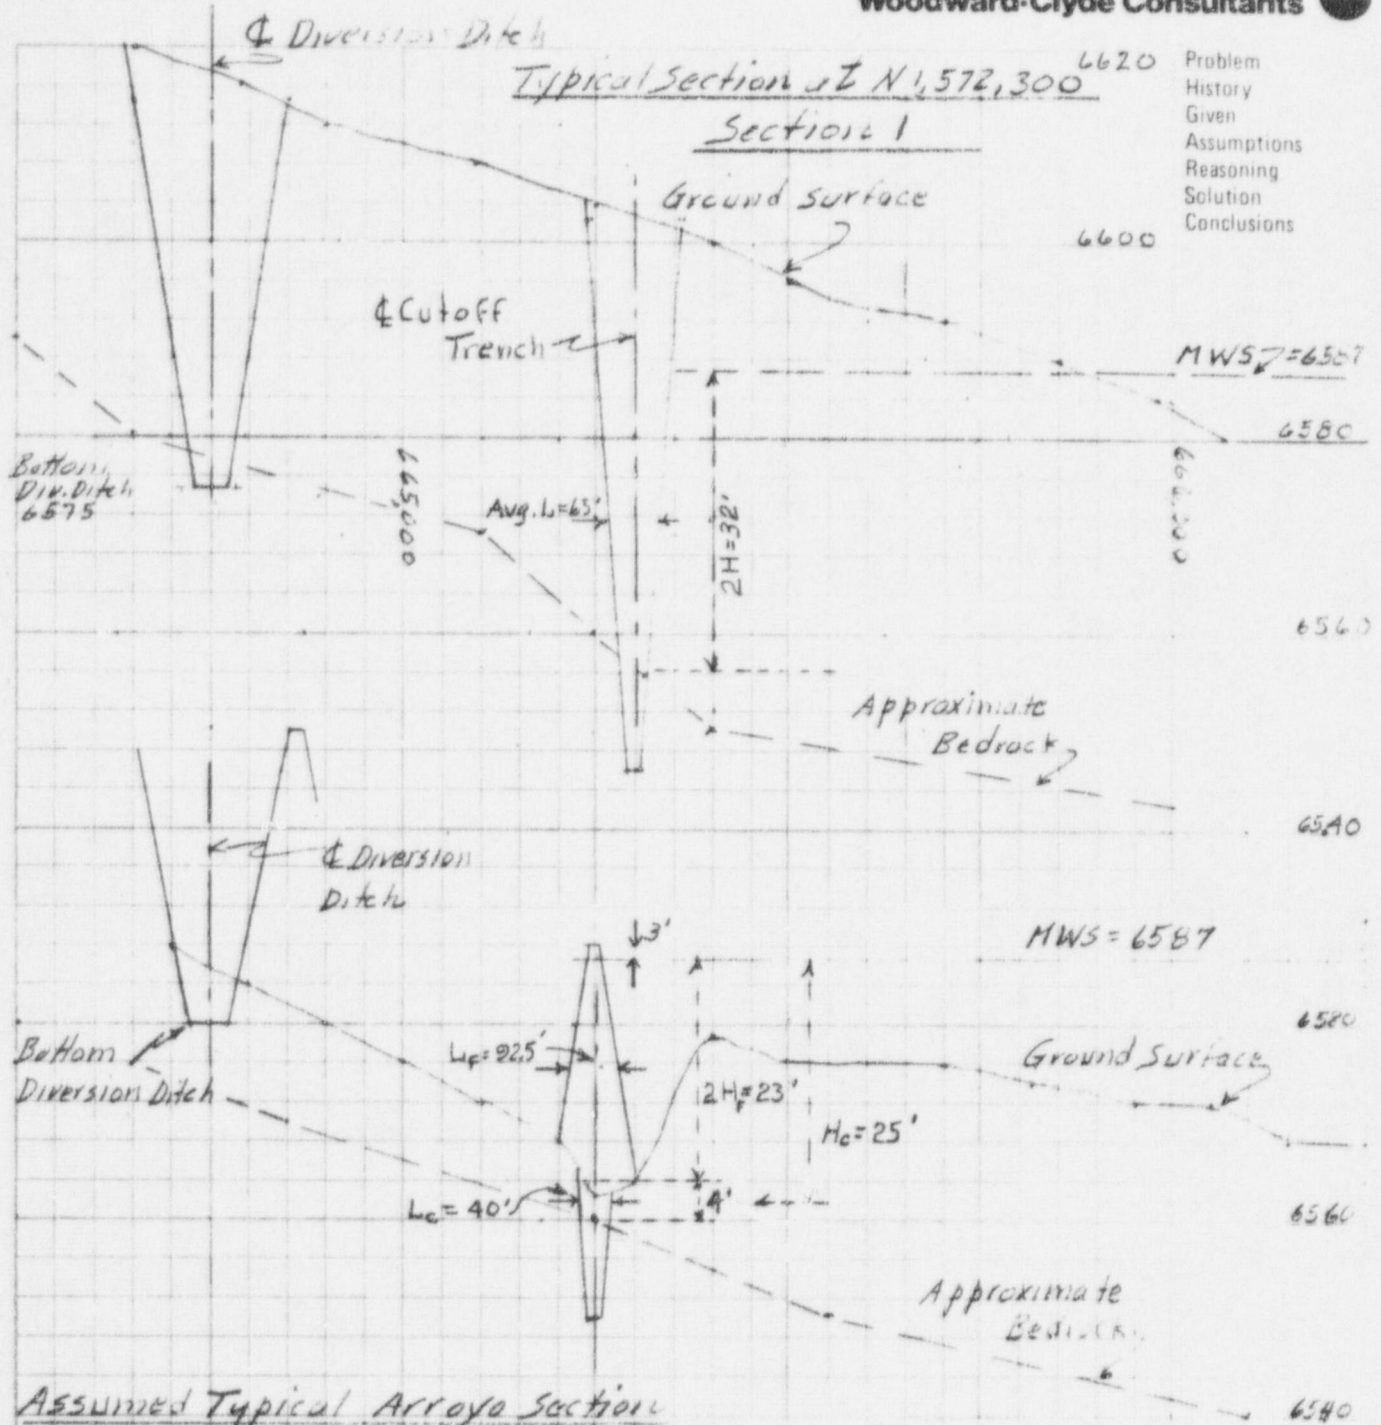 Woodward-Clyde Consultants
℄ Diversion Ditch
Typical Section at N 1,572,300
Section 1
6620
Problem
History
Given
Assumptions
Reasoning
Solution
Conclusions
Ground Surface
6600
℄ Cutoff
Trench
MWS = 6587
6580
Bottom
Div. Ditch
6575
665,000
Avg. L=65'
2H=32'
6560
Approximate
Bedrock
6540
℄ Diversion
Ditch
3'
MWS = 6587
6580
Bottom
Diversion Ditch
LF = 92.5'
Ground Surface
2HF=23'
Hc=25'
Lc = 40'
4'
6560
Approximate
Bedrock
Assumed Typical Arroyo Section
6540